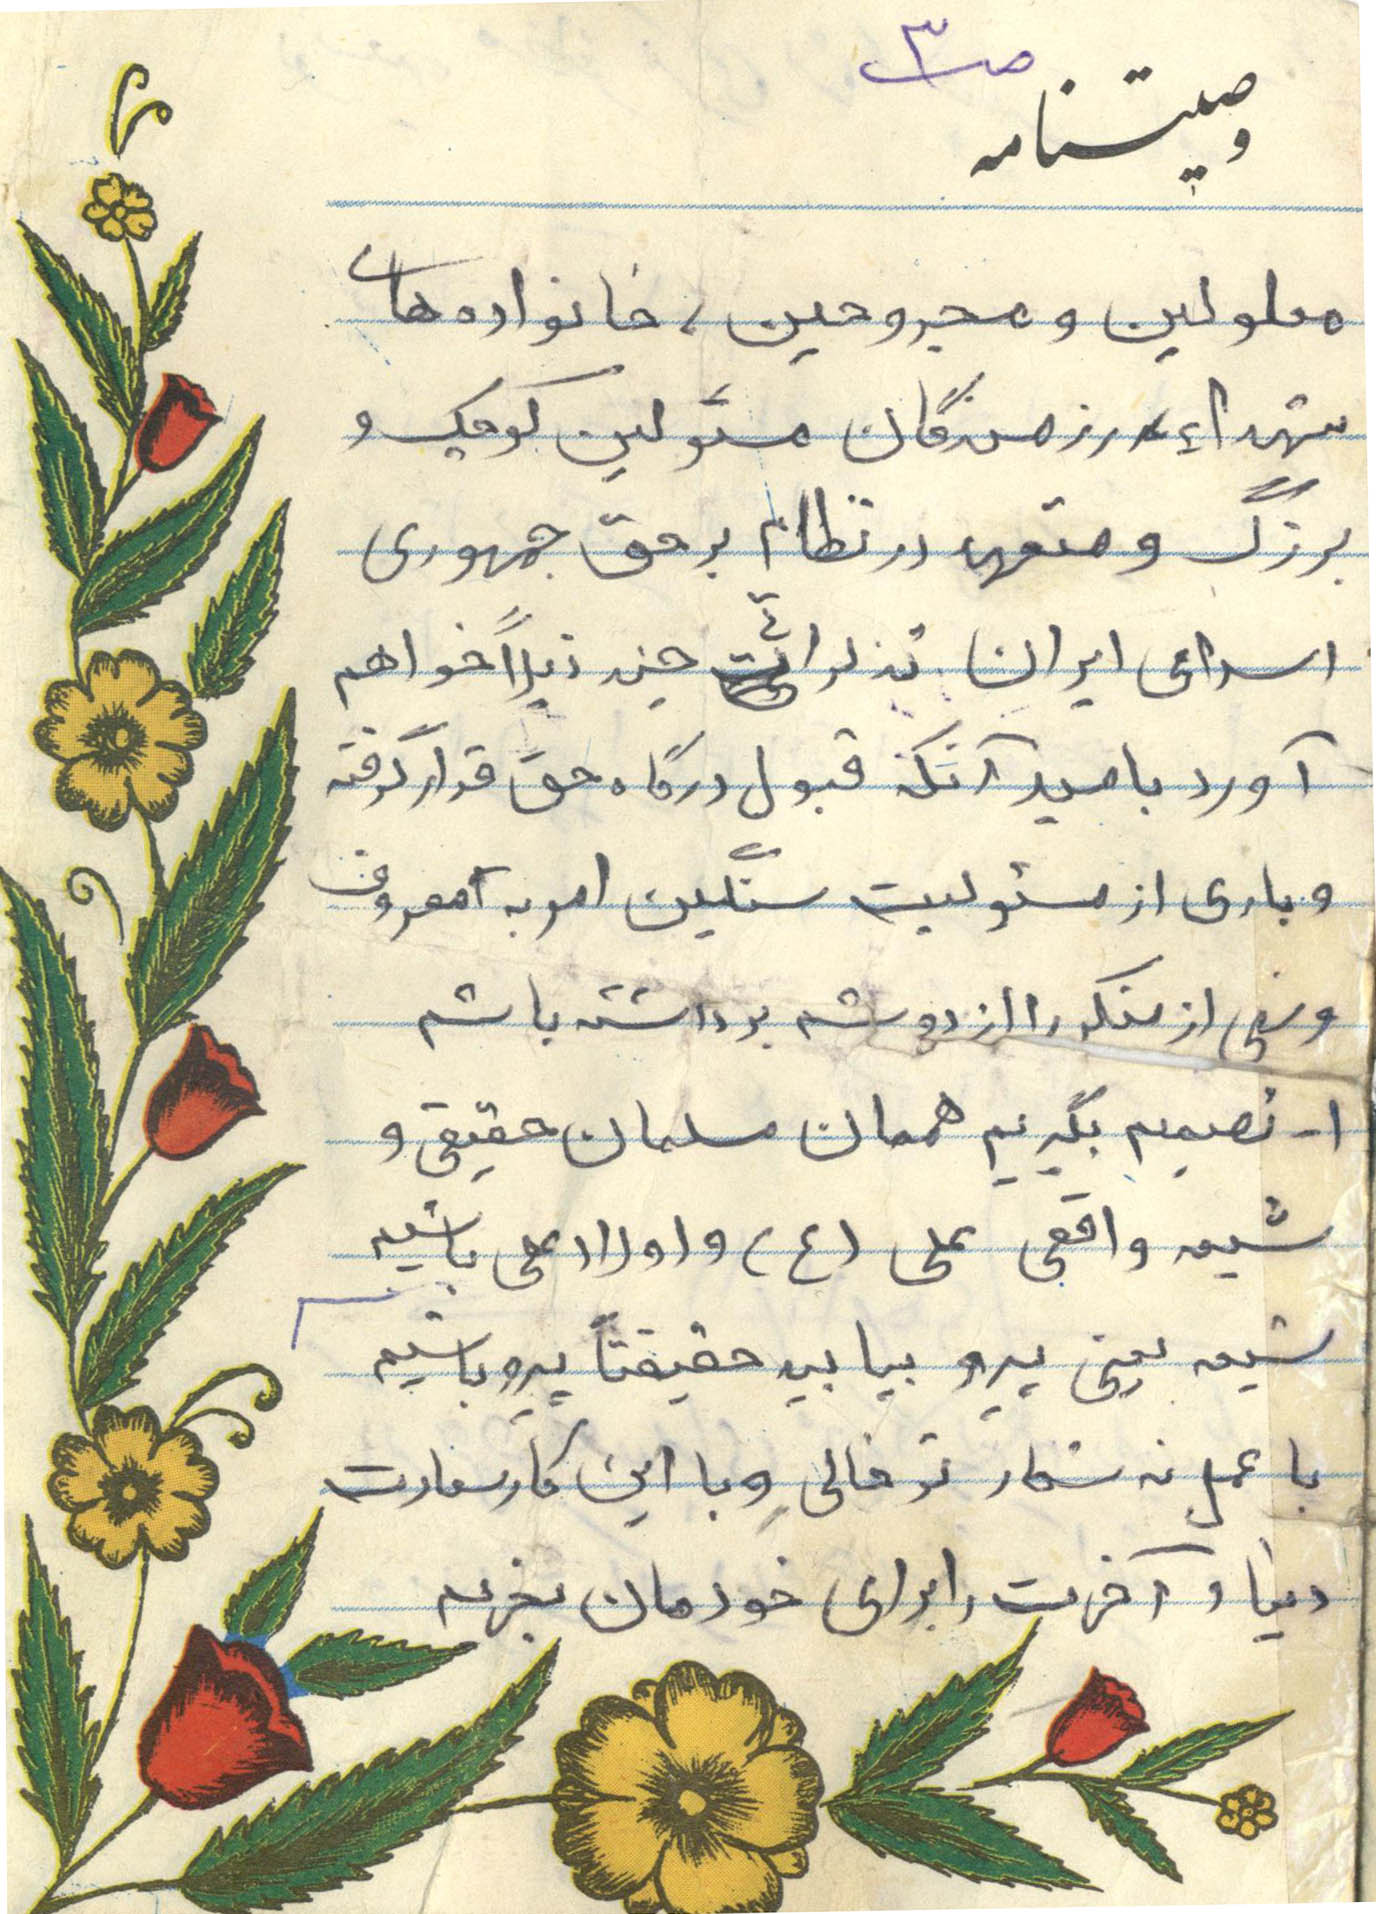 ص ۳
وصیتنامه
معلولین و مجروحین، خانواده های
شهداء، رزمندگان مسئولین کوچک و
بزرگ و متعهد در نظام بر حق جمهوری
اسلامی ایران تذکراتی چند ذیلاً خواهم
آورد با امید آنکه قبول درگاه حق قرار گرفته
و باری از مسئولیت سنگین امر به معروف
و نهی از منکر را از دوشم برداشته باشم
۱- تصمیم بگیریم همان مسلمان حقیقی و
شیعه واقعی علی (ع) و اولاد علی باشیم
شیعه یعنی پیرو بیایید حقیقتاً پیرو باشیم
با عمل نه شعار تو خالی و با این کار سعادت
دنیا و آخرت را برای خودمان بخریم